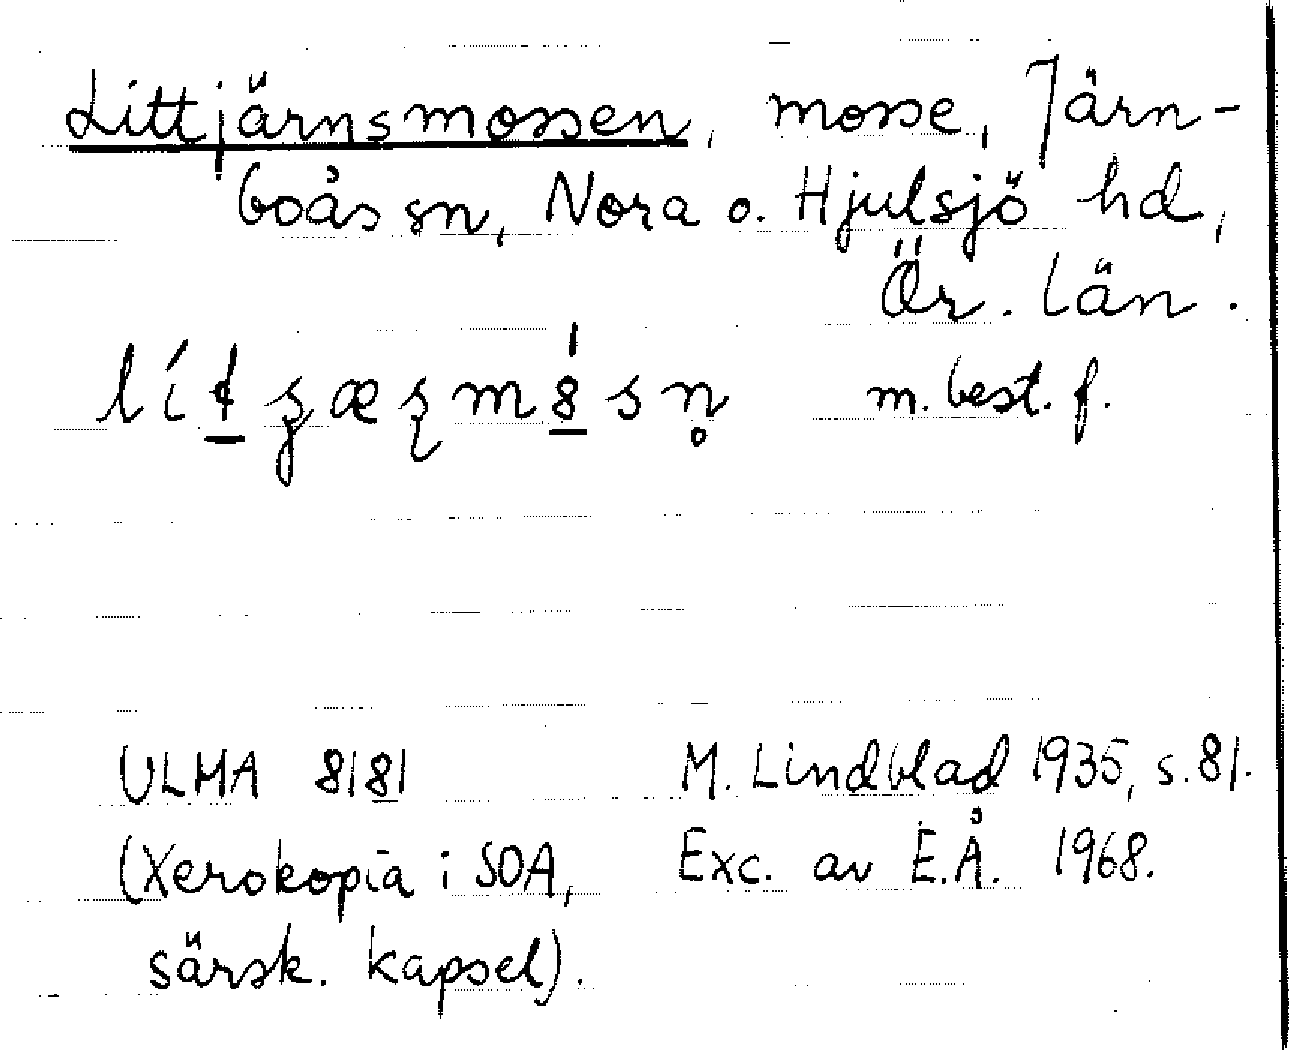 Littjärnsmossen, mosse, Järn-
boås sn, Nora o. Hjulsjö hd,
Ör. län.
m. best. f.
ULMA 8181 M. Lindblad 1935, s. 81.
(Xerokopia i SOA, Exc. av E.Å. 1968.
särsk. kapsel).